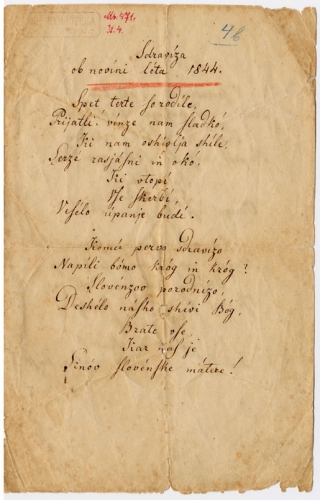 Ms. 471.
It. 4.
4b
Sdraviza
ob novini léta 1844.
Spet terte so rodile,
Prijatli: vinze nam sladkó,
Ki nam oshivlja shile,
Serze rasjásni in oko.
Ki vtopi
Vse skerbi,
Veselo upanje budi.
Komu pervo sdravizo
Napili bomo króg in króg?
Slovénzov porodnizo,
Deshélo násho shivi Bóg,
Brate vse,
Kar nas je
Sinóv slovénske mátere!